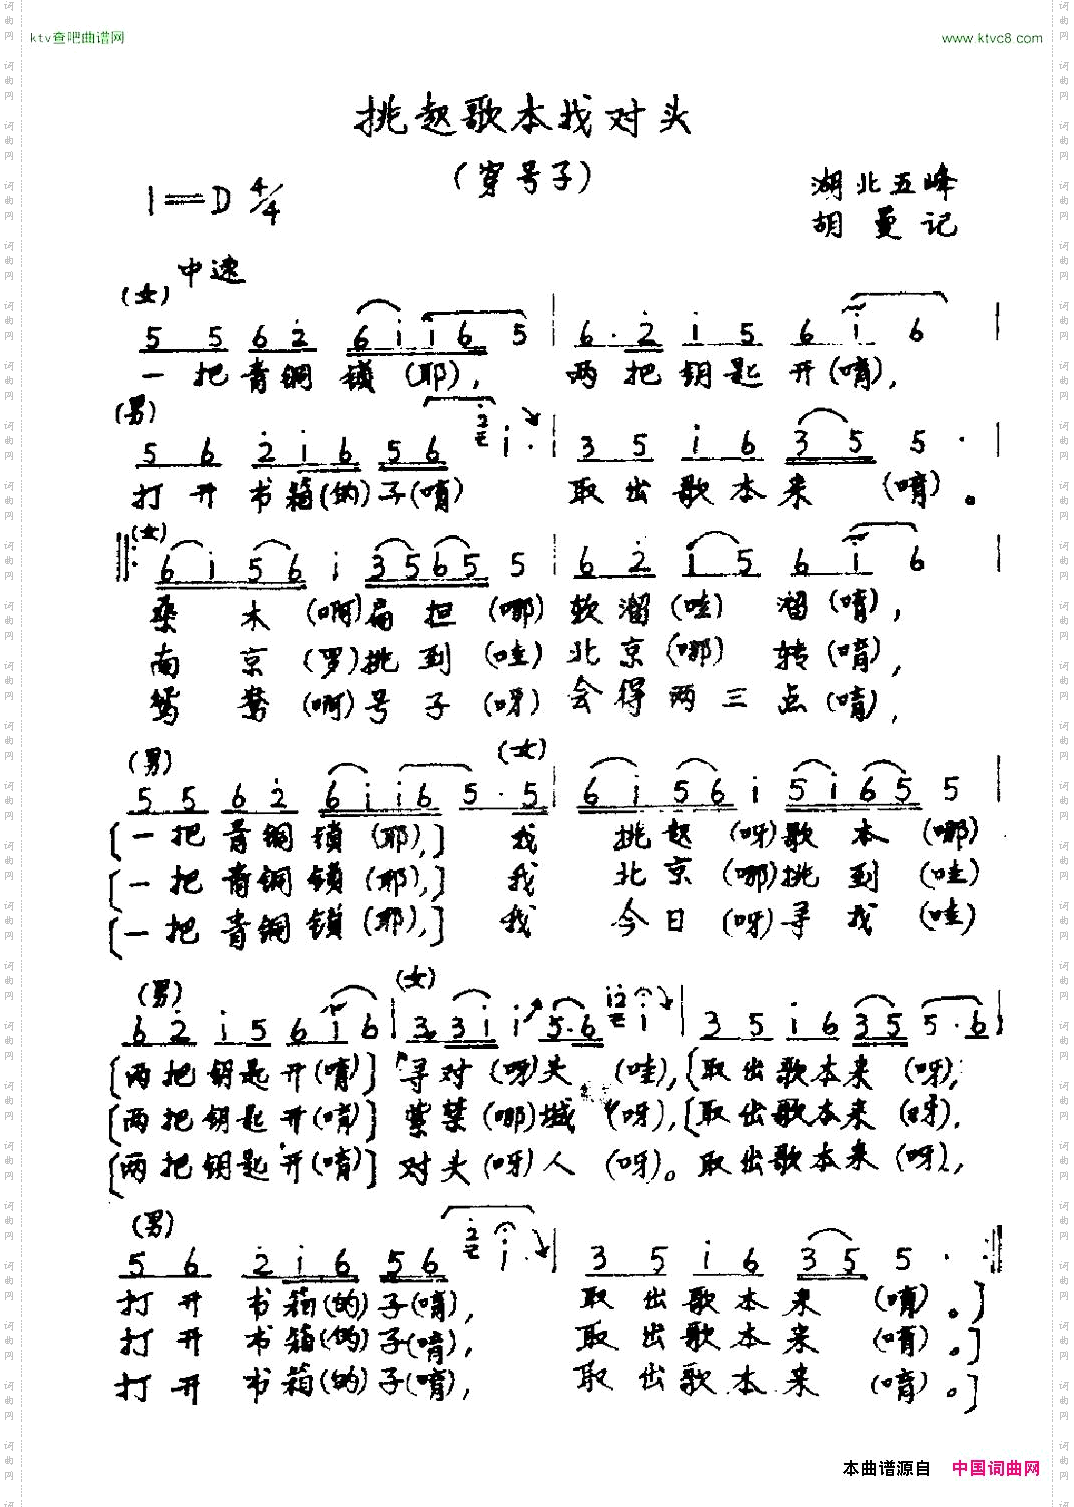 ktv查吧曲谱网
www.ktvc8.com
挑起歌本找对头
(穿号子)
1=D 4/4
湖北五峰
胡曼记
中速
(女)
5 5 6 2 6 i i 6 5 | 6 · 2 i 5 6 i 6 |
一把青铜锁(耶), 两把钥匙开(唷),
(男)
5 6 2 i 6 5 6 2 i · | 3 5 i 6 3 5 5 · |
打开书箱(的)子(唷) 取出歌本来(唷)。
(女)
6 i 5 6 i 3 5 6 5 5 | 6 2 i 5 6 i 6 |
桑木(啊)扁担(哪)软溜(哇)溜(唷),
南京(罗)挑到(哇)北京(哪)转(唷),
鸳鸯(啊)号子(呀)会得两三点(唷),
(男) (女)
5 5 6 2 6 i i 6 5 · 5 | 6 i 5 6 i 5 i 6 5 5 |
[一把青铜锁(耶),] 我挑起(呀)歌本(哪)
[一把青铜锁(耶),] 我北京(哪)挑到(哇)
[一把青铜锁(耶),] 我今日(呀)寻找(哇)
(男) (女)
6 2 i 5 6 i 6 | 3 · 3 i i 5 · 6 i 2 i | 3 5 i 6 3 5 5 · 6 |
[两把钥匙开(唷)] 寻对(呀)头(哇),[取出歌本来(呀),
[两把钥匙开(唷)] 紫禁(哪)城(呀),[取出歌本来(呀),
[两把钥匙开(唷)] 对头(呀)人(呀)。取出歌本来(呀),
(男)
5 6 2 i 6 5 6 2 i · | 3 5 i 6 3 5 5 · :||
打开书箱(的)子(唷), 取出歌本来(唷)。]
打开书箱(的)子(唷), 取出歌本来(唷)。]
打开书箱(的)子(唷), 取出歌本来(唷)。]
本曲谱源自 中国词曲网